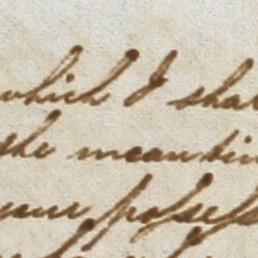 which I shal
the meantim
your possess